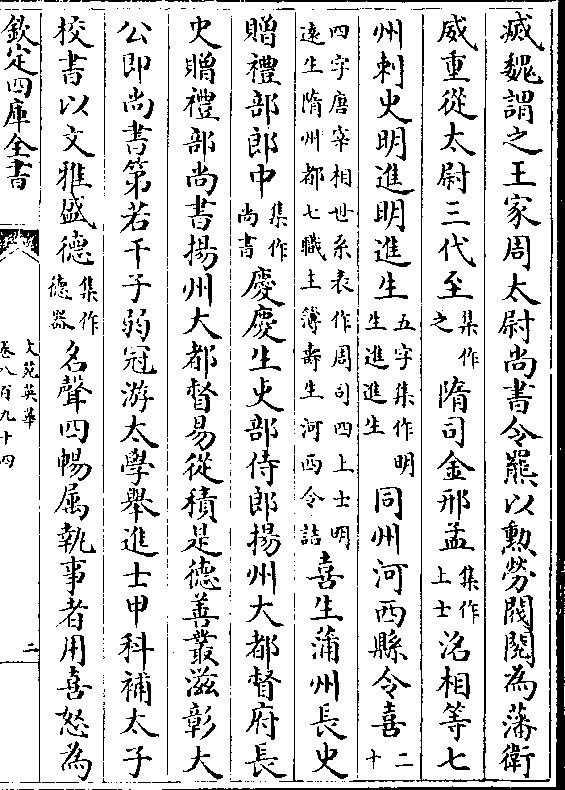 臧魏謂之王家周太尉尚書令羆以勲勞閥閱為藩衛
威重從太尉三代至集作之隋司金邢孟集作上士洺相等七
州刺史明進明進生五字集作明生進進生同州河西縣令喜二十
四字唐宰相世系表作周司四上士明遠生隋州都七職主簿壽生河西令喆喜生蒲州長史
贈禮部郎中集作尚書慶慶生吏部侍郎揚州大都督府長
史贈禮部尚書揚州大都督易從積是德善叢滋彰大
公即尚書第若干子弱冠游太學舉進士甲科補太子
校書以文雅盛德集作德器名聲四暢属執事者用喜怒為
欽定四庫全書
文苑英華
卷八百九十四
二